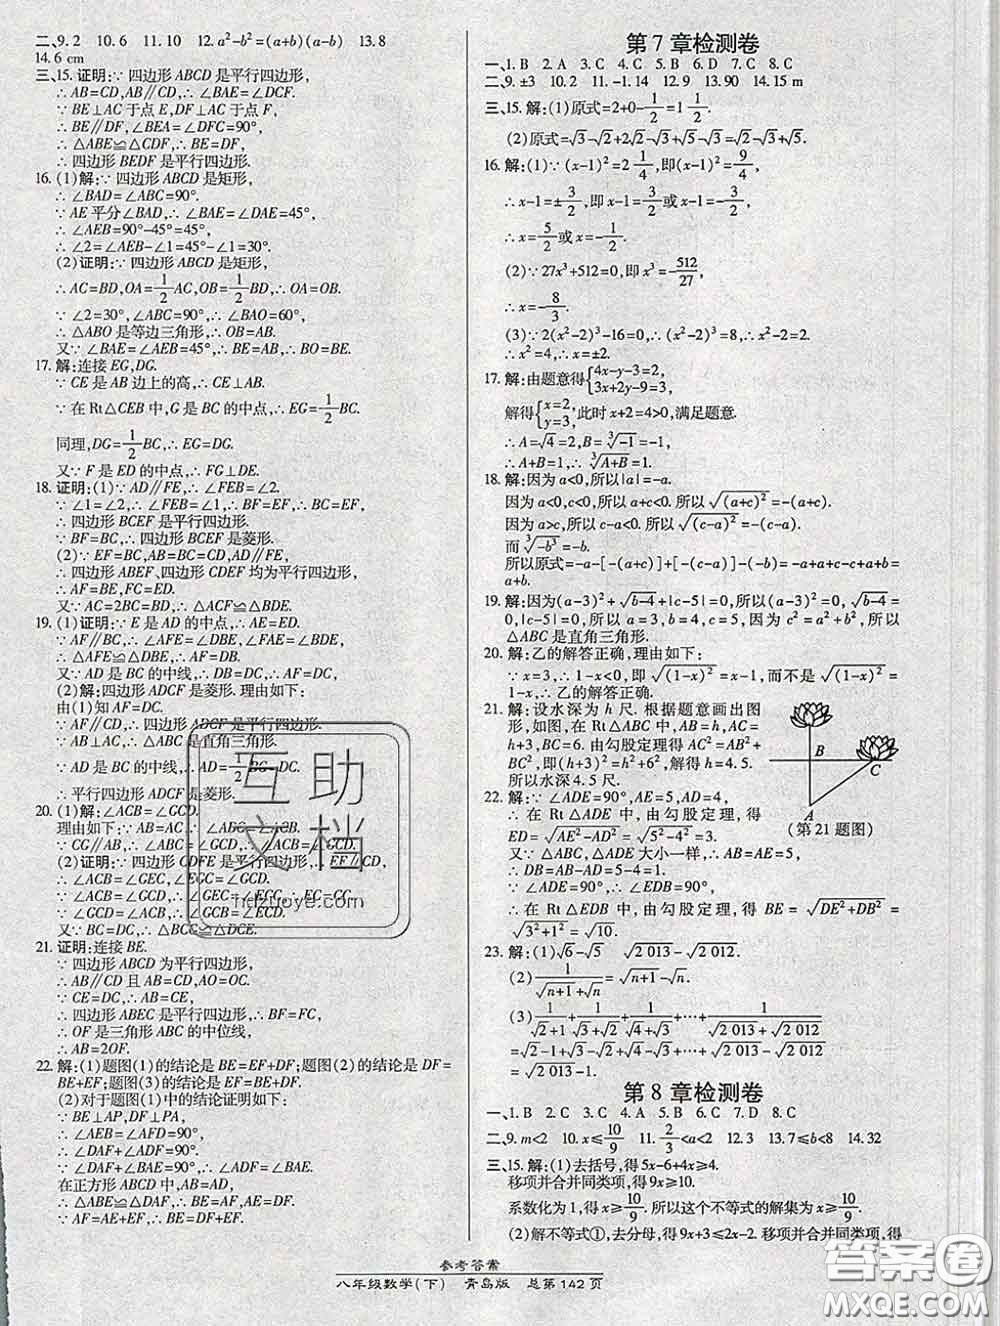 二、9. 2　10. 6　11. 10　12. a²-b²=(a+b)(a-b)　13. 8
14. 6 cm
三、15. 证明:∵ 四边形 ABCD 是平行四边形,
∴ AB=CD,AB∥CD,∴ ∠BAE=∠DCF.
∵ BE⊥AC 于点 E,DF⊥AC 于点 F,
∴ BE∥DF,∠BEA=∠DFC=90°,
∴ △ABE≌△CDF,∴ BE=DF,
∴ 四边形 BEDF 是平行四边形.
16. (1)解:∵ 四边形 ABCD 是矩形,
∴ ∠BAD=∠ABC=90°.
∵ AE 平分∠BAD,∴ ∠BAE=∠DAE=45°,
∴ ∠AEB=90°-45°=45°,
∴ ∠2=∠AEB-∠1=45°-∠1=30°.
(2)证明:∵ 四边形 ABCD 是矩形,
∴ AC=BD,OA=1/2AC,OB=1/2BD,∴ OA=OB.
∵ ∠2=30°,∠AEB=45°,∴ ∠BAO=60°,
∴ △ABO 是等边三角形,∴ OB=AB.
又∵ ∠BAE=∠AEB=45°,∴ AB=BE,∴ BO=BE.
17. 解:连接 EG,DG.
∵ CE 是 AB 边上的高,∴ CE⊥AB.
∵ 在 Rt△CEB 中,G 是 BC 的中点,∴ EG=1/2BC.
同理,DG=1/2BC,∴ EG=DG.
又∵ F 是 ED 的中点,∴ FG⊥DE.
18. 证明:(1)∵ AD∥FE,∴ ∠FEB=∠2.
∵ ∠1=∠2,∴ ∠FEB=∠1,∴ BF=EF,∴ BC=EF,
∴ 四边形 BCEF 是平行四边形.
∵ BF=BC,∴ 四边形 BCEF 是菱形.
(2)∵ EF=BC,AB=BC=CD,AD∥FE,
∴ 四边形 ABEF、四边形 CDEF 均为平行四边形,
∴ AF=BE,FC=ED.
又∵ AC=2BC=BD,∴ △ACF≌△BDE.
19. (1)证明:∵ E 是 AD 的中点,∴ AE=ED.
∵ AF∥BC,∴ ∠AFE=∠DBE,∠FAE=∠BDE,
∴ △AFE≌△DBE,∴ AF=DB.
又∵ AD 是 BC 的中线,∴ DB=DC,∴ AF=DC.
(2)解:四边形 ADCF 是菱形. 理由如下:
由(1)知 AF=DC.
∵ AF∥CD,∴ 四边形 ADCF 是平行四边形.
∵ AB⊥AC,∴ △ABC 是直角三角形.
∵ AD 是 BC 的中线,∴ AD=1/2BC=DC.
∴ 平行四边形 ADCF 是菱形.
20. (1)解:∠ACB=∠GCD.
理由如下:∵ AB=AC,∴ ∠ABC=∠ACB.
∵ CG∥AB,∴ ∠ABC=∠GCD,∴ ∠ACB=∠GCD.
(2)证明:∵ 四边形 CDFE 是平行四边形,∴ EF∥CD,
∴ ∠ACB=∠GEC,∠EGC=∠GCD.
∵ ∠ACB=∠GCD,∴ ∠GEC=∠EGC,∴ EC=GC.
∵ ∠GCD=∠ACB,∴ ∠GCB=∠ECD.
∵ BC=DC,∴ △BCG≌△DCE.
21. 证明:连接 BE.
∵ 四边形 ABCD 为平行四边形,
∴ AB∥CD 且 AB=CD,AO=OC.
∵ CE=DC,∴ AB=CE,
∴ 四边形 ABEC 是平行四边形,∴ BF=FC,
∴ OF 是三角形 ABC 的中位线,
∴ AB=2OF.
22. 解:(1)题图(1)的结论是 BE=EF+DF;题图(2)的结论是 DF=
BE+EF;题图(3)的结论是 EF=BE+DF.
(2)对于题图(1)中的结论证明如下:
∵ BE⊥AP,DF⊥PA,
∴ ∠BEA=∠AFD=90°,
∴ ∠DAF+∠ADF=90°.
∵ ∠DAF+∠BAE=90°,∴ ∠ADF=∠BAE.
在正方形 ABCD 中,AB=AD,
∴ △ABE≌△DAF,∴ BE=AF,AE=DF.
∵ AF=AE+EF,∴ BE=DF+EF.
第 7 章检测卷
一、1. B　2. A　3. C　4. C　5. B　6. D　7. C　8. C
二、9. ±3　10. 2　11. -1.14　12. 9　13. 90　14. 15 m
三、15. 解:(1)原式=2+0-1/2=1 1/2.
(2)原式=√3-√2+2√2-√3+√5-√3=√2-√3+√5.
16. 解:(1)∵ (x-1)²=2 1/4,即(x-1)²=9/4,
∴ x-1=±3/2,即 x-1=3/2或 x-1=-3/2,
∴ x=5/2或 x=-1/2.
(2)∵ 27x³+512=0,即 x³=-512/27,
∴ x=-8/3.
(3)∵ 2(x²-2)³-16=0,∴ (x²-2)³=8,∴ x²-2=2,
∴ x²=4,∴ x=±2.
17. 解:由题意得{4x-y-3=2, 3x+2y-9=3,
解得{x=2, y=3,此时 x+2=4>0,满足题意.
∴ A=√4=2,B=∛-1=-1,
∴ A+B=1,∴ ∛(A+B)=1.
18. 解:因为 a<0,所以|a|=-a.
因为 a<0,c<0,所以 a+c<0. 所以 √(a+c)²=-(a+c).
因为 a>c,所以 c-a<0. 所以 √(c-a)²=-(c-a).
而∛-b³=-b.
所以原式=-a-[-(a+c)]+[-(c-a)]-(-b)=-a+a+c-c+a+b=
a+b.
19. 解:因为(a-3)²+√(b-4)+|c-5|=0,所以(a-3)²=0,√(b-4)=
0,|c-5|=0,所以 a=3,b=4,c=5,因为 c²=a²+b²,所以
△ABC 是直角三角形.
20. 解:乙的解答正确,理由如下:
∵ x=3,∴ 1-x<0,即√(1-x)²=x-1,而不是√(1-x)²=
1-x,∴ 乙的解答正确.
21. 解:设水深为 h 尺. 根据题意画出图
形,如图,在 Rt△ABC 中,AB=h,AC=
h+3,BC=6. 由勾股定理得 AC²=AB²+
BC²,即(h+3)²=h²+6²,解得 h=4.5.
所以水深 4.5 尺.
B
C
A
(第 21 题图)
22. 解:∵ ∠ADE=90°,AE=5,AD=4,
∴ 在 Rt△ADE 中,由勾股定理,得
ED=√(AE²-AD²)=√(5²-4²)=3.
又∵ △ABC,△ADE 大小一样,∴ AB=AE=5,
∴ DB=AB-AD=5-4=1.
∵ ∠ADE=90°,∴ ∠EDB=90°,
∴ 在 Rt△EDB 中,由勾股定理,得 BE=√(DE²+DB²)=
√(3²+1²)=√10.
23. 解:(1)√6-√5　√2 013-√2 012
(2)1/(√(n+1)+√n)=√(n+1)-√n
(3)1/(√2+1)+1/(√3+√2)+1/(√4+√3)+⋯+1/(√2 013+√2 012)
=√2-1+√3-√2+√4-√3+⋯+√2 013-√2 012
=√2 013-1.
第 8 章检测卷
一、1. B　2. C　3. C　4. A　5. B　6. C　7. D　8. C
二、9. m<2　10. x≤10/9　11. 2/3<a<2　12. 3　13. 7≤b<8　14. 32
三、15. 解:(1)去括号,得 5x-6+4x≥4.
移项并合并同类项,得 9x≥10.
系数化为 1,得 x≥10/9. 所以这个不等式的解集为 x≥10/9.
(2)解不等式①,去分母,得 9x+3≤2x-2. 移项并合并同类项,得
参考答案
八年级数学(下)　青岛版　总第 142 页
互助
文档
hdzuoye.com
答案圈
MXQE.COM